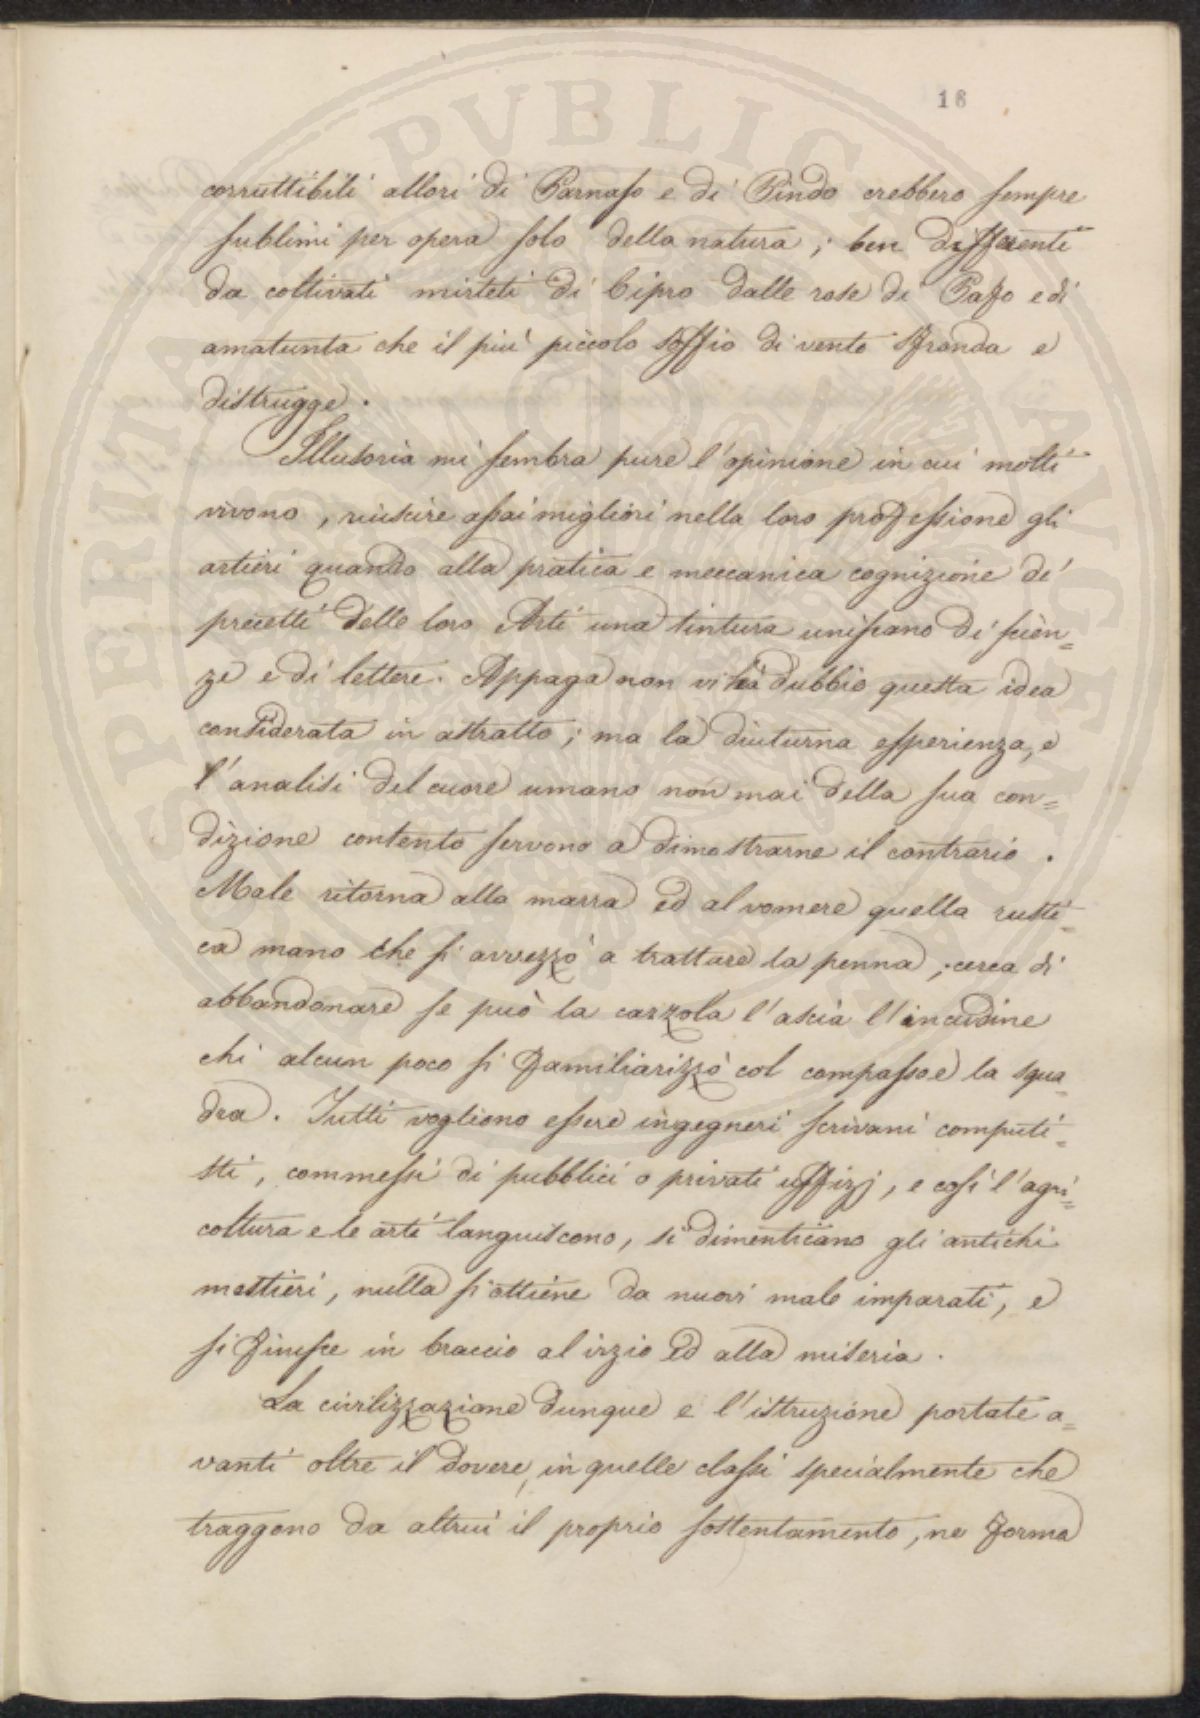 18
corruttibili allori di Parnaso e di Pindo crebbero sempre
sublimi per opera solo della natura; ben differenti
da coltivati mirteti di Cipro dalle rose di Pafo e di
amatunta che il più piccolo soffio di vento sfronda e
distrugge.
Illusoria mi sembra pure l'opinione in cui molti
vivono, riuscire assai migliori nella loro professione gli
artieri quando alla pratica e meccanica cognizione de'
precetti delle loro Arti una tintura uniscano di scien=
ze e di lettere. Appaga non vi ha dubbio questa idea
considerata in astratto; ma la diuturna esperienza, e
l'analisi del cuore umano non mai della sua con=
dizione contento servono a dimostrarne il contrario.
Male ritorna alla marra ed al vomere quella rusti=
ca mano che si avvezzò a trattare la penna; cerca di
abbandonare se può la cazzola l'ascia l'incudine
chi alcun poco si familiarizzò col compasso e la squa=
dra. Tutti vogliono essere ingegneri scrivani computi=
sti, commessi di pubblici o privati uffizj, e così l'agri=
coltura e le arti languiscono, si dimenticano gli antichi
mestieri, nulla si ottiene da nuovi male imparati, e
si finisce in braccio al vizio ed alla miseria.
La civilizzazione dunque e l'istruzione portate a=
vanti oltre il dovere, in quelle classi specialmente che
traggono da altrui il proprio sostentamento, ne forma
SPERITA PVBLICA AVGENDA